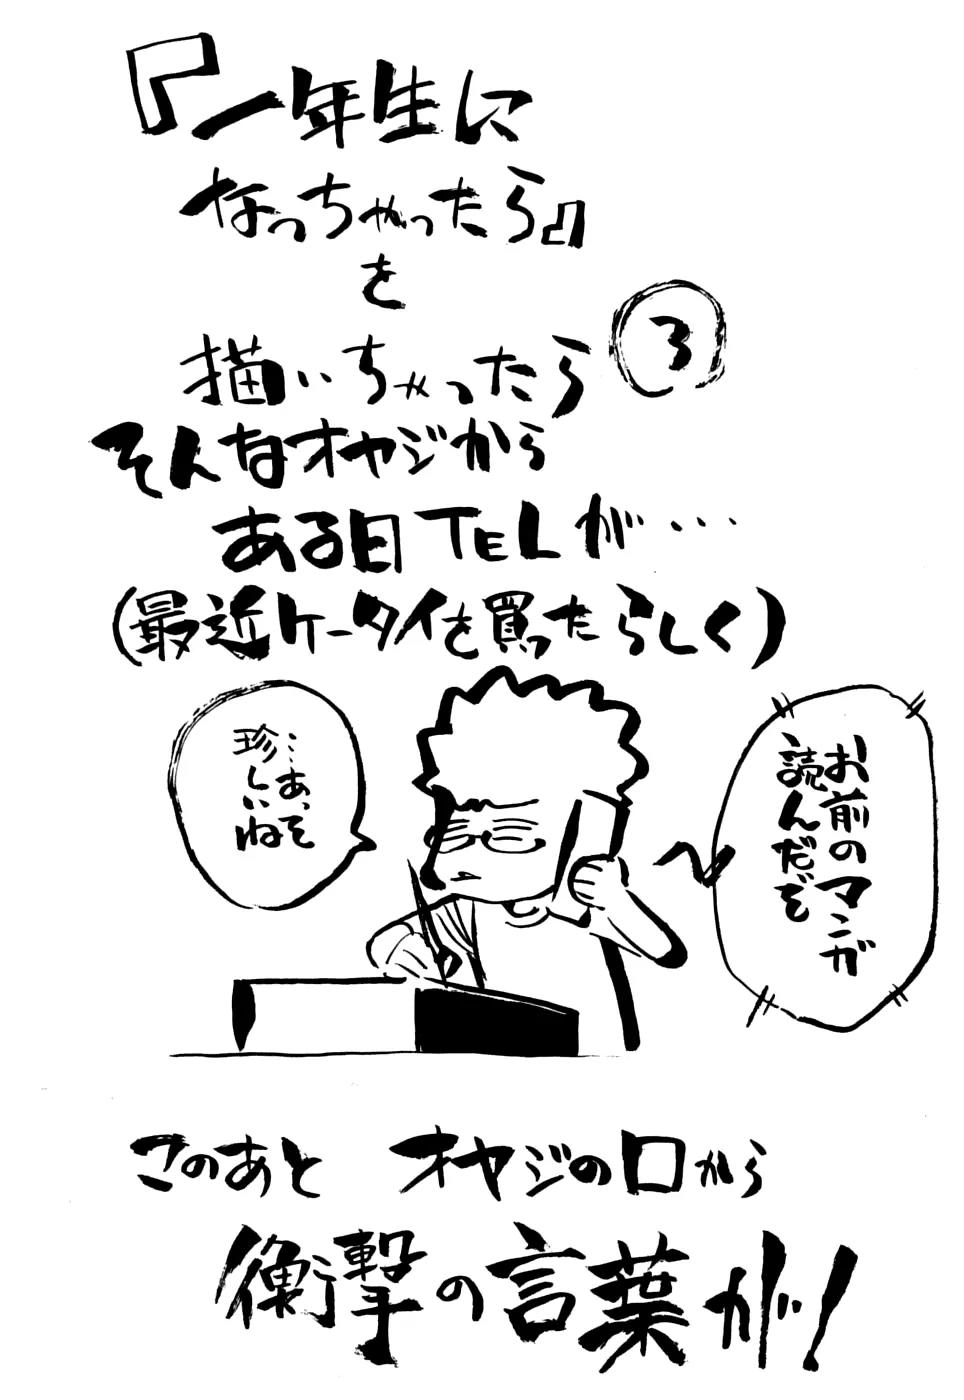 『一年生に
なっちゃったら』
を
描いちゃったら③
そんなオヤジから
ある日TELが・・・
(最近ケータイを買ったらしく)
お前のマンガ
読んだぞ
…あ、そ
珍しいね
このあと オヤジの口から
衝撃の言葉が!